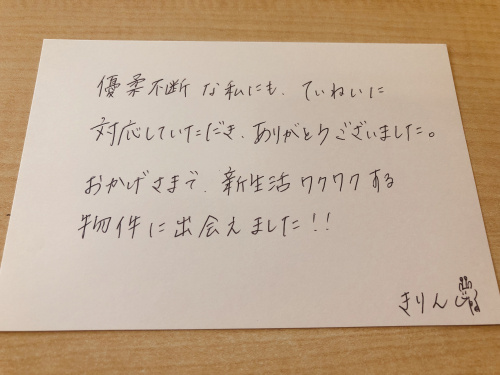 優柔不断な私にも、ていねいに
対応していただき、ありがとうございました。
おかげさまで、新生活ワクワクする
物件に出会えました!!
きりん